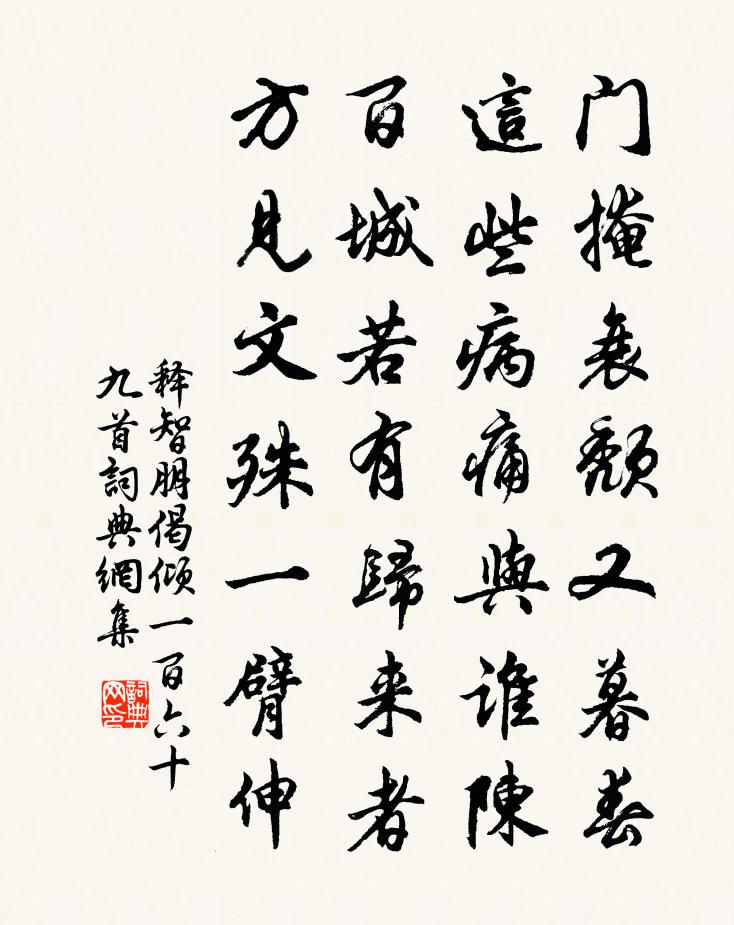 门掩衰颓又暮春
這些病痛與谁陳
百城若有歸来者
方見文殊一臂伸
释智朋偈倾一百六十
九首詞典網集
詞典网印